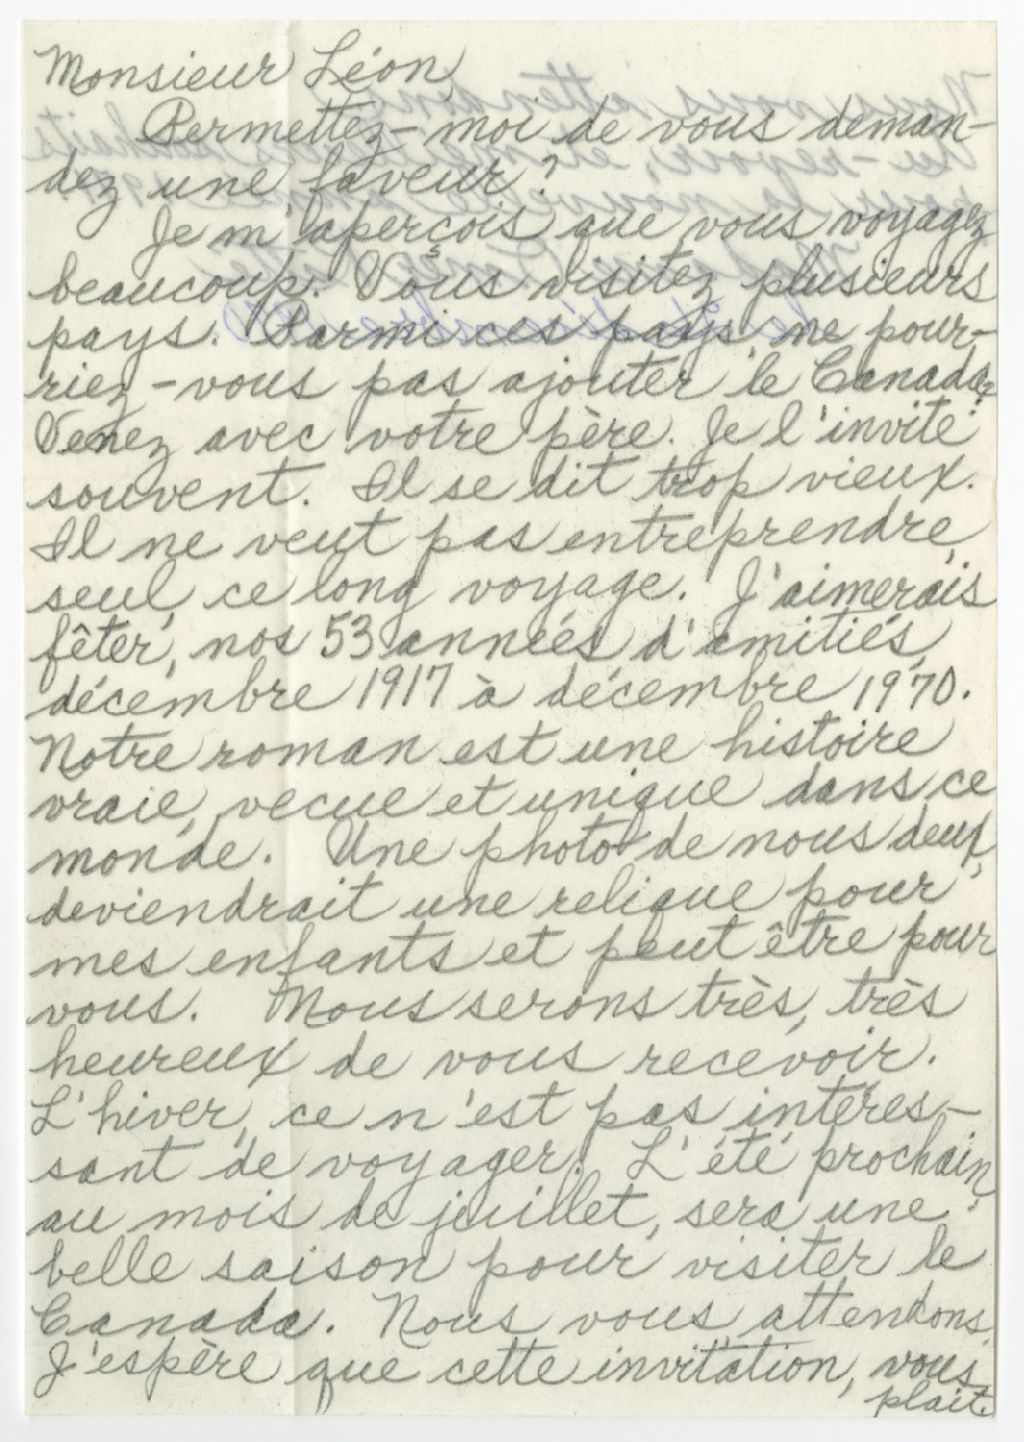 Monsieur Léon,
Permettez-moi de vous deman-
dez une faveur?
Je m'aperçois que vous voyagez
beaucoup. Vous visitez plusieurs
pays. Parmi ces pays, ne pour-
riez-vous pas ajouter le Canada?
Venez avec votre père. Je l'invite
souvent. Il se dit trop vieux.
Il ne veut pas entreprendre,
seul, ce long voyage. J'aimerais
fêter, nos 53 années d'amitiés,
décembre 1917 à décembre 1970.
Notre roman est une histoire
vraie, vecue et unique dans ce
monde. Une photo de nous deux,
deviendrait une relique pour
mes enfants et peut être pour
vous. Nous serons très, très
heureux de vous recevoir.
L'hiver, ce n'est pas intéres-
sant de voyager. L'été prochain,
au mois de juillet, sera une
belle saison pour visiter le
Canada. Nous vous attendons.
J'espère que cette invitation, vous
plait.